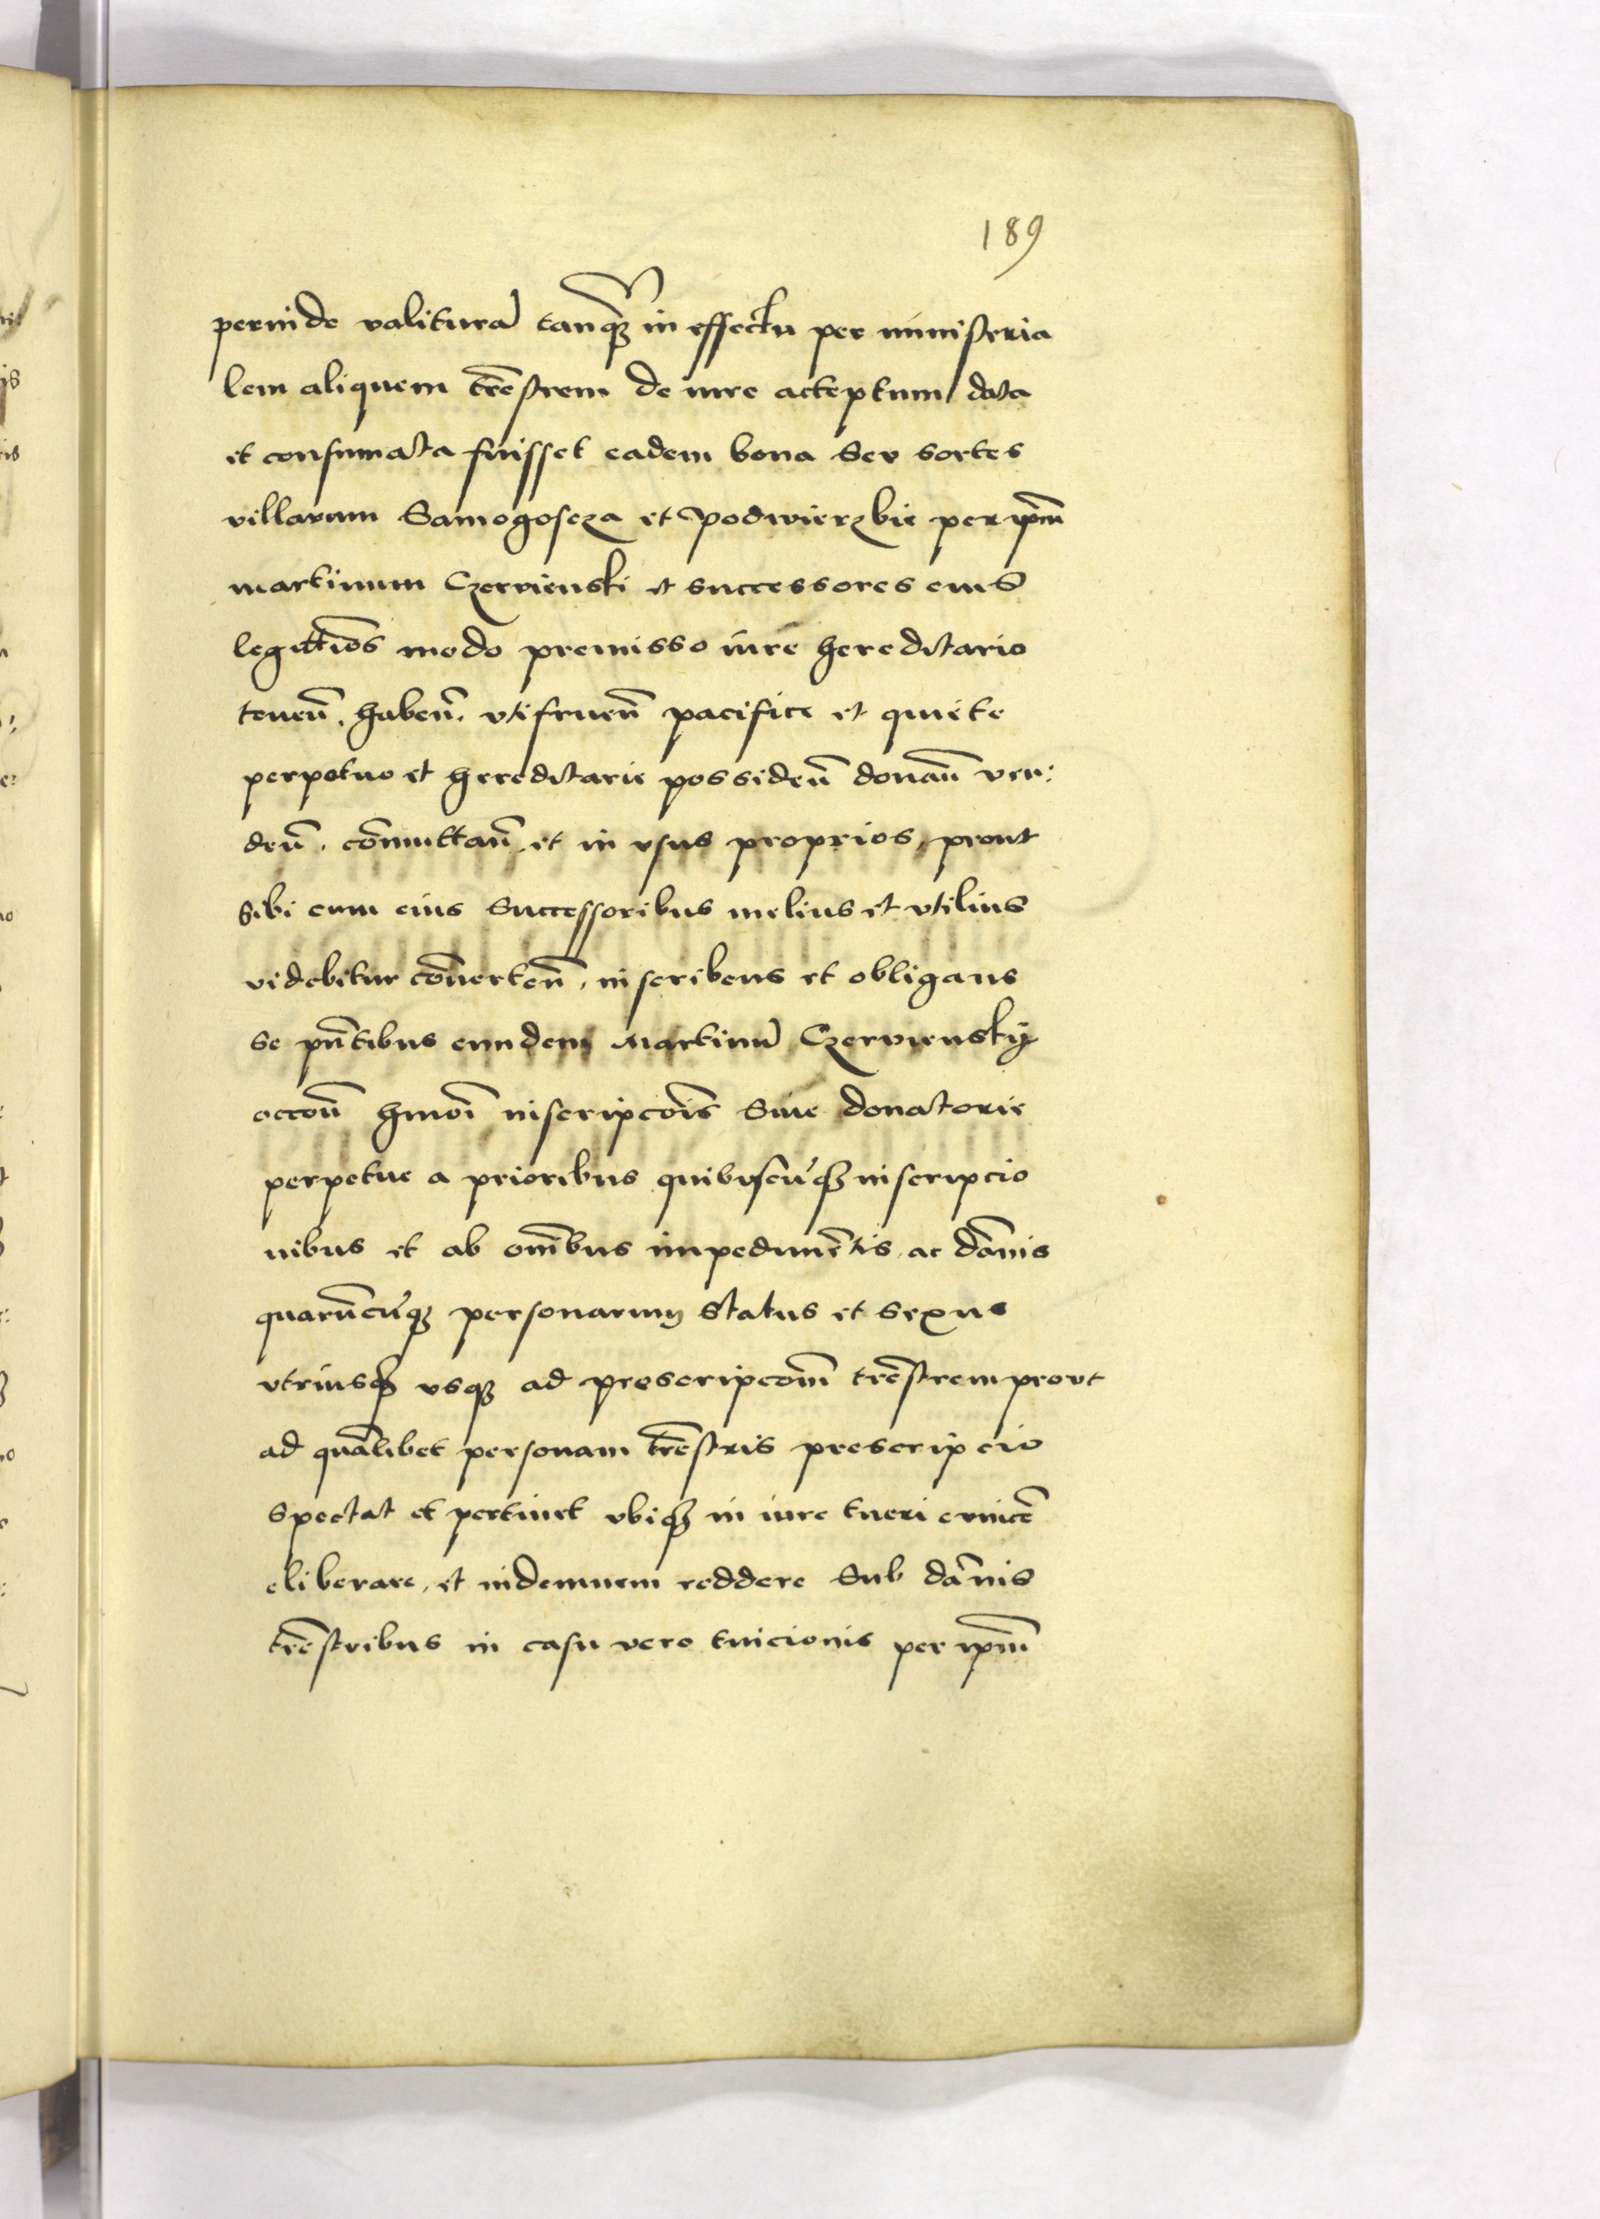 189
perinde valiturā tanq̄ȝ in effectu per ministeria
lem aliquem trēstrem de iure acceptum data
et consumata fuisset eadem bona seu sortes
villarum Samogoscza et Podwierzbie per ip̄m
martinum Czervienski et successores eius
legittīos modo premisso iure hereditario
tenen̄. haben̄. vtifruen̄ pacifice et quiete
perpetuo et hereditarie possiden̄ donan̄ ven:
den̄. cōmuttan̄. et in vsus proprios, prout
sibi cum eius Successoribus melius et vtilius
videbitur cōuerten̄, inscribens et obligans
se pn̄tibus eundem Martinū Czerviensky
occōne hmōi inscripcōis Siue donatorie
perpetue a prioribus quibuscūqȝ inscripcio
nibus et ab om̄ibus impedimētis ac dāmnis
quarūcūqȝ personarum status et sexus
vtriusqȝ vsqȝ ad prescripcōm trēstrem prout
ad quālibet personam trēstris prescripcio
spectat et pertinet vbiqȝ in iure tueri euincē
eliberare, et indemnem reddere Sub dāmnis
trēstribus in casu vero tuicionis per ip̄m